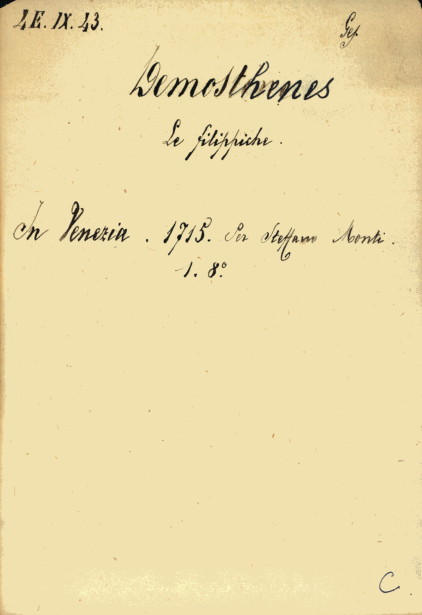 4E. IX. 43.
Demosthenes
Le filippiche.
In Venezia. 1715. Per Steffano Monti.
1. 8°
C